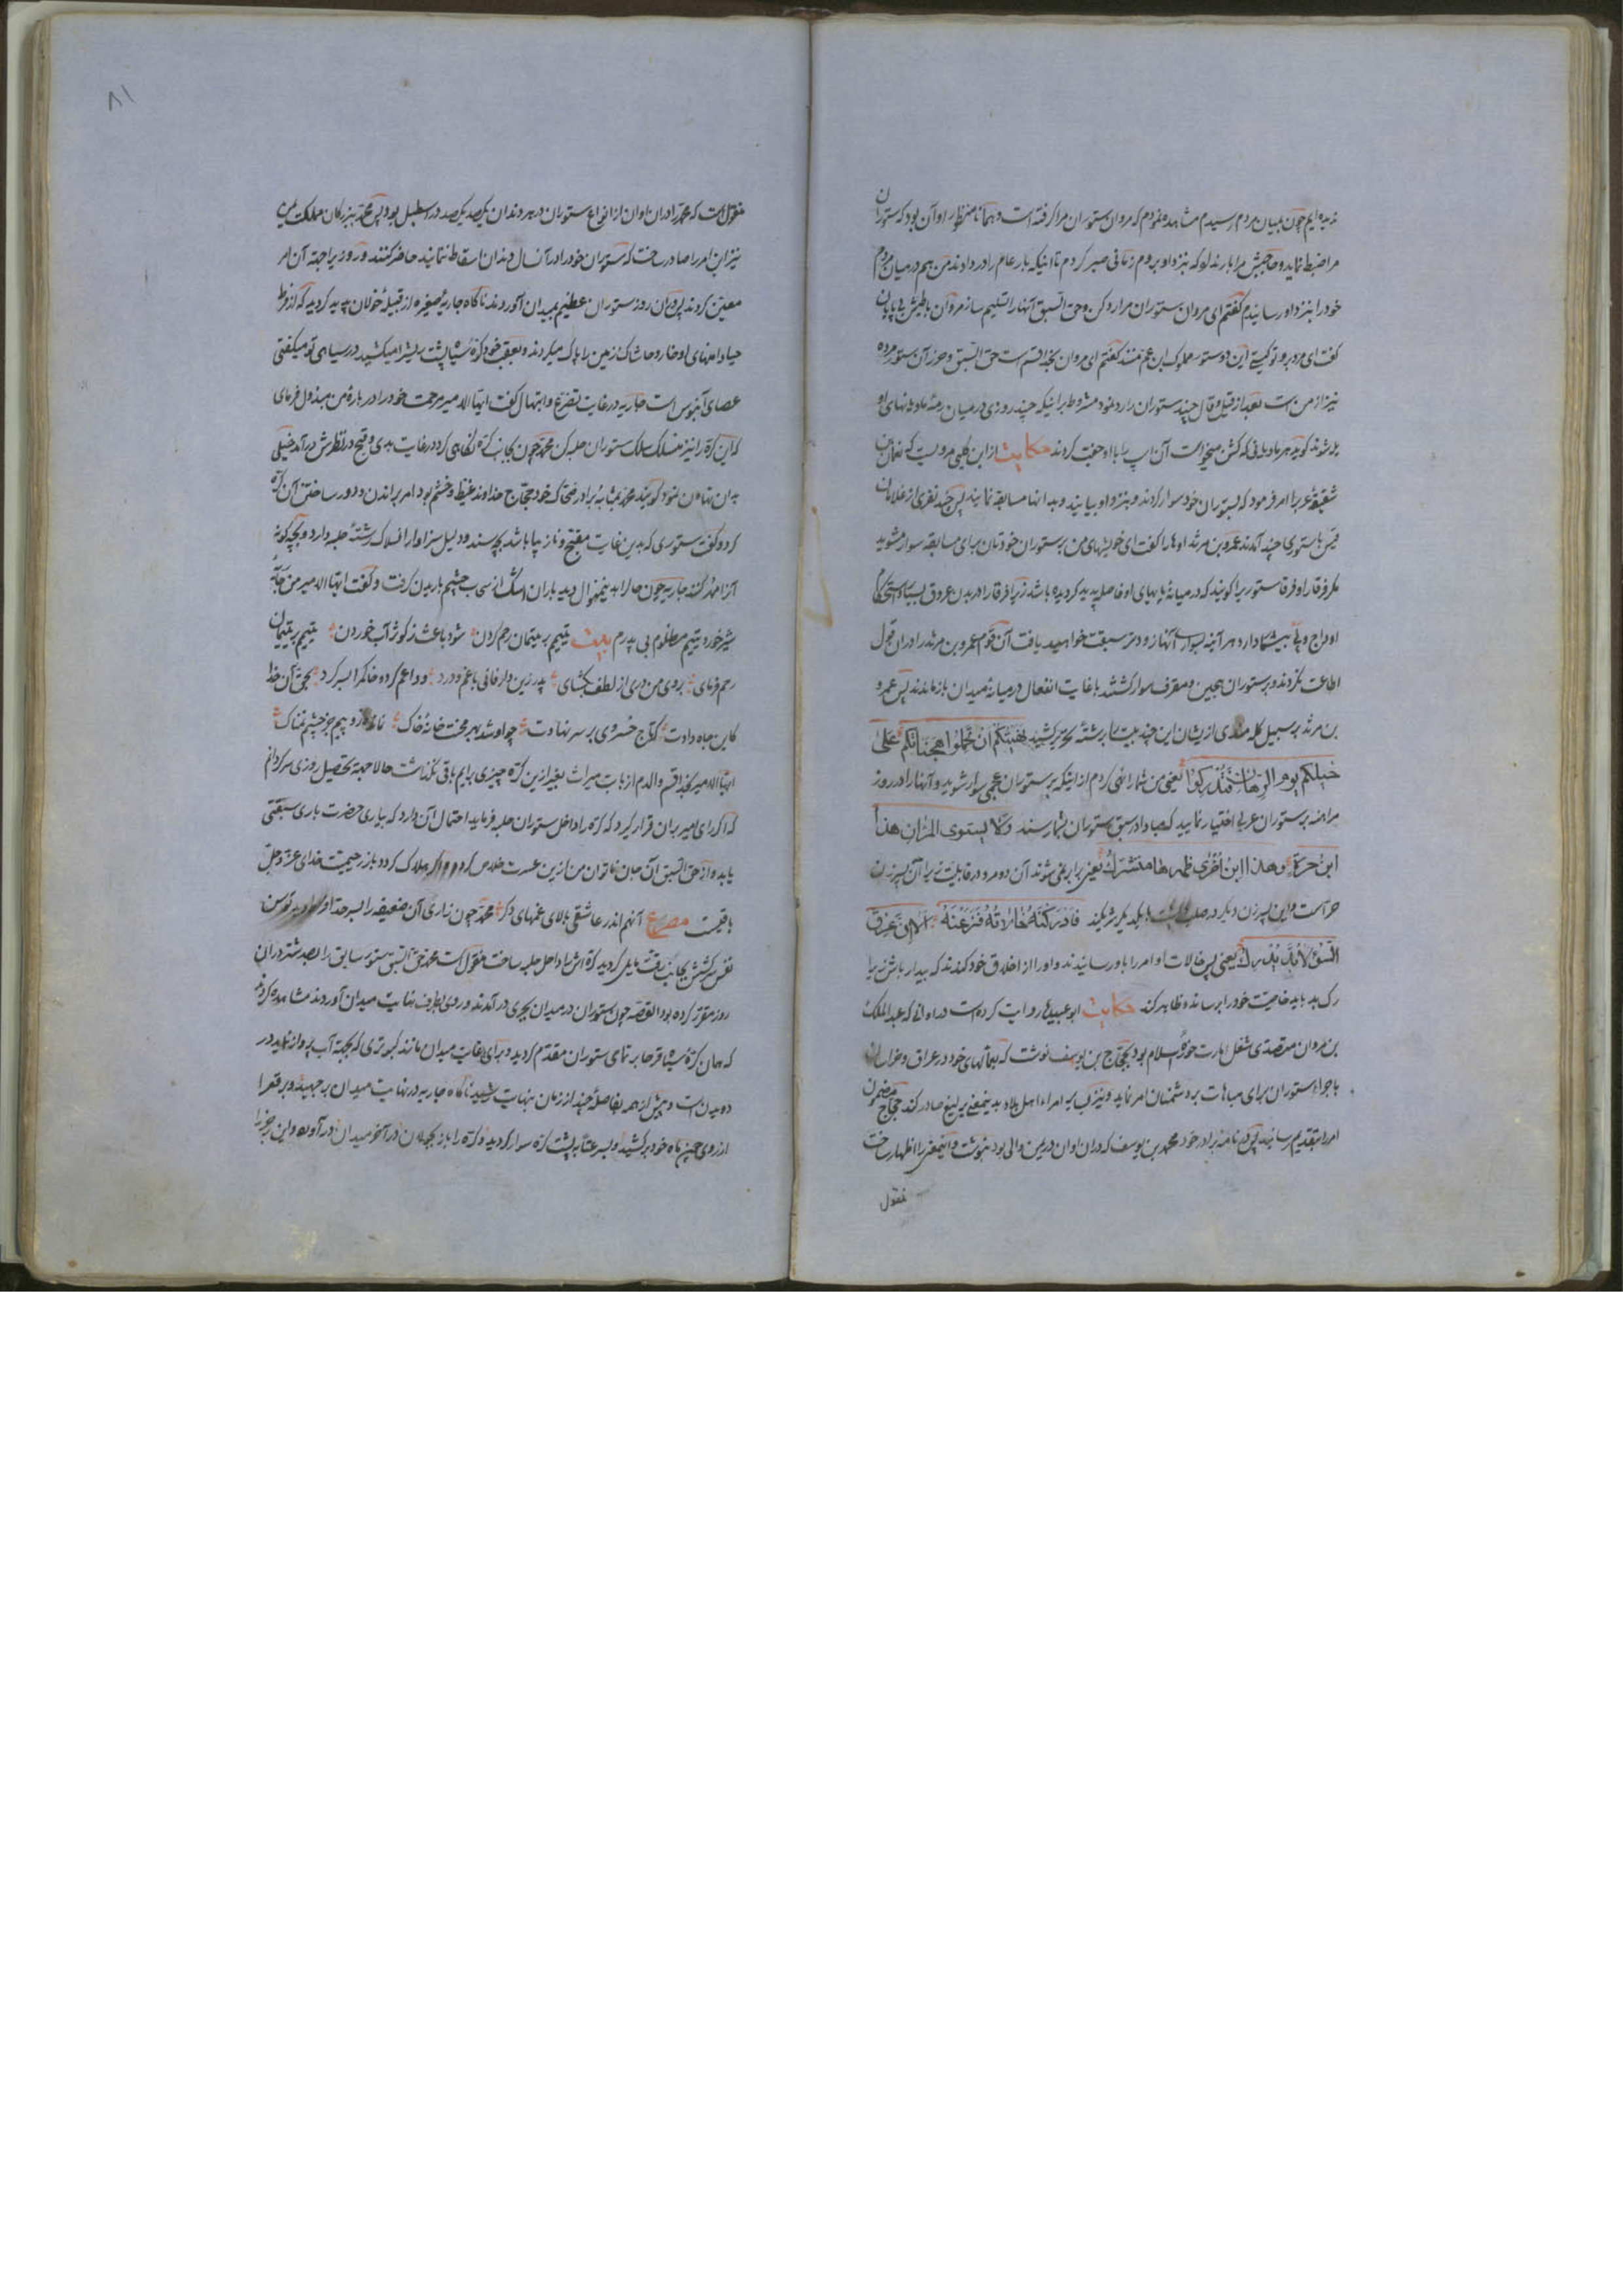 ندیده‌ایم چون بمیان مردم رسیدم مشاهده نمودم که مروان ستوران مرا گرفته است و همانا منظار او آن بود که ستوران
مرا ضبط نماید و حاجبش مرا بار نداد که بنزد او بروم زمانی صبر کردم تا اینکه بار عام را در دادند من هم در میان مردم
خود را بنزد او رسانیدم گفتم ای مروان ستوران مرا رد کن و حق السبق آنها را تسلیم ساز مروان با طیش بی پایان
گفت ای مرد برو تو کیستی این دو ستور مملوک ابن عم منند گفتم ای مروان بخدا قسم است حق السبق و حرز آن ستور مرده
نیز از من است بعد از قیل و قال چند ستوران را رد نمود مشروط بر اینکه چند روزی در میان رمهٔ مادیانهای او
بر شوند گویند هر مادیانی که کشن میخواست آن اسپ را با او جفت کردند حکایت از ابن کلبی مرویست که نعمان
شقیقهٔ عرب را امر فرمود که بستوران خود سوار گردند و بنزد او بیایند و بدانها مسابقه نمایند پس چند نفری از غلامان
قیس با ستوری چند آمدند عمرو بن مرثد اوها را گفت ای خویشهای من بر ستوران خودتان برای مسابقه سوار مشوید
مگر فرقا را و فرقا ستوریرا گویند که در میانهٔ پایهای او فاصله پدید گردیده باشد زیرا فرقا را در بدن عروق بسیار و استحکام
اوداج و پی بیشمار دارد هر آینه بسواری آنها زودتر سبقت خواهید یافت آن قوم عمرو بن مرثد را در آن قول
اطاعت نکردند و بر ستوران هجین و مقرف سوار گشتند با غایت انفعال در میانهٔ میدان باز ماندند پس عمرو
بن مرثد بر سبیل گله مندی از یشان این چند بیت را برشتهٔ تحریر کشید نهیتکم ان تحملوا هجناتکم علی
خیلکم یوم الرهان فتدرکوا یعنی من شما را نهی کردم از اینکه بر ستوران عجمی سوار شوید و آنها را در روز
مراهنه بر ستوران عربی اختیار نمایید که مبادا در سبق ستوران شما رسند و لا یستوی المران هذا
ابن حرة و هذا ابن اخری ظهرها متشرک یعنی برابر نمی شوند آن دو مرد در قابلیت زیرا آن پسر زن
حره است و این پسر زن دیگر در صلب با یکدیگر شریکند فادرکنه خالاته فنزعنه الا ان عرق
السوء لابد یدرک یعنی پس خالات او امر را باو رسانیدند و او را از اخلاق خود کندند که بیدار باش زیرا
رگ بد باید خاصیت خود را برساند و ظاهر کند حکایت ابو عبیده روایت کرده است در اوانی که عبدالملک
بن مروان متصدی شغل امارت حوزهٔ اسلام بود بحجاج بن یوسف نوشت که بعمالهای خود در عراق و خراسان
باجراء ستوران برای مباهات بر دشمنان امر نماید و نیز بر امراء اهل بلاد بدینمعنی یرلیغ صادر کند حجاج مضمون
امر را بتقدیم رسانید پس نامه برادر خود محمد بن یوسف که در آن اوان در یمن والی بود بنوشت و اینمعنی را اظهار ساخت
منقول
۸۱
منقول است که محمد را در آن اوان از انواع ستوران در هر دندان یکصد یکصد در اسطبل بود پس محمد بزرگان مملکت یمن
نیز این امر را صادر ساخت که ستوران خود را در آنسال دندان اسقاط ننمایند حاضر کنند و روزیرا جهته آن امر
معین کردند پس در آن روز ستوران عظیم بمیدان آوردند ناگاه جاریهٔ صغیره از قبیلهٔ خولان پدید گردید که از فرط
حیا دامنهای او خار و خاشاک زمین را پاک میکردند و بعقب خود کرهٔ سیاه پشت ریشرا میکشید در سیاهی تو میگفتی
عصای آبنوس است جاریه در غایت تضرع و ابتهال گفت ایها الامیر مرحمت خود را در بارهٔ من مبذول فرمای
که این کره را نیز منسلک سلک ستوران حلبه کن محمد چون بجانب کره نگاهی کرد در غایت بدی و قبح در نظرش در آمد خیلی
بدان تهاون نمود گویند محمد بمثابهٔ برادر ضحاک خود حجاج خداوند غیظ و خشم بود امر براندن و دور ساختن آن کره
کرد و گفت ستوری که بدین غایت مقبح و ناز یبا باشد بچه سند و دلیل سزاوار انسلاک رشتهٔ حلبه دارد و بچه گونه
آنرا مهر کنند جاریه چون حالرا بدینمنوال دید باران اشک از سحاب چشم باریدن گرفت و گفت ایها الامیر من جاریهٔ
شیر خورد یتیم مظلوم بی پدرم بیت یتیم بر یتیمان رحم کردن شود باعث ز کوثر آب خوردن یتیم بر یتیمان
رحم فرمای بروی من دری از لطف بکشای پدر زین دار فانی با غم و درد وداعم کرده خاکم را بسر کرد بحق آن خدا
کاین جاه دادت که تاج خسروی بر سر نهادت چو او شد بهر محنت خانهٔ خاک جز چشم نمناک
ایها الامیر بخدا قسم والدم از بابت میراث بغیر از ین کره چیزی برایم باقی نگذاشت حالا جهته تحصیل روزی سرگردانم
که اگر رای امیر بر آن قرار گیرد که کره را داخل ستوران حلبه فرماید احتمال آن دارد که بیاری حضرت باری سبقتی
یابد و از حق السبق آن جان ناتوان من از ین عسرت خلاص گردد و اگر هلاک گردد باز رحیمیت خدای عز و جل
باقیست مصرع آنهم اندر عاشقی بالای غمهای دگر محمد چون زاری آن ضعیفه را بسر حد افراط دید توسن
نفس سرکشش بجانب رقت مایل گردید کره اش را داخل حلبه ساخت منقول است محمد حق السبق ستور سابق را بصد شتر در آن
روز مقرر کرده بود القصه چون ستوران در میدان بجری در آمدند و روی بطرف نهایت میدان آوردند مشاهده کردند
که همان کرهٔ سیاه قرحا بر تمامی ستوران مقدم گردید و برای غایت میدان مانند کبوتری که بجهته آب پرواز نماید در
دویدنست و پیش از همه بفاصلهٔ چند از زمان بنهایت رسید ناگاه جاریه در نهایت میدان بر جهید و برقع را
از روی چون ماه خود بر کشید و بسرعت بر پشت کره سوار گردید و کره را باز بجولان در آخر میدان در آورد و این رجز را